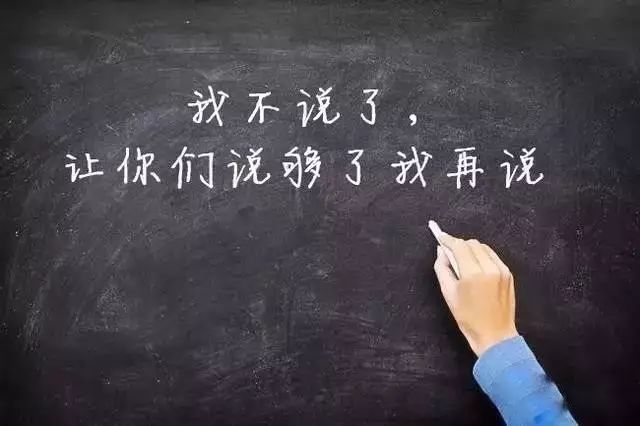 我不说了，
让你们说够了我再说